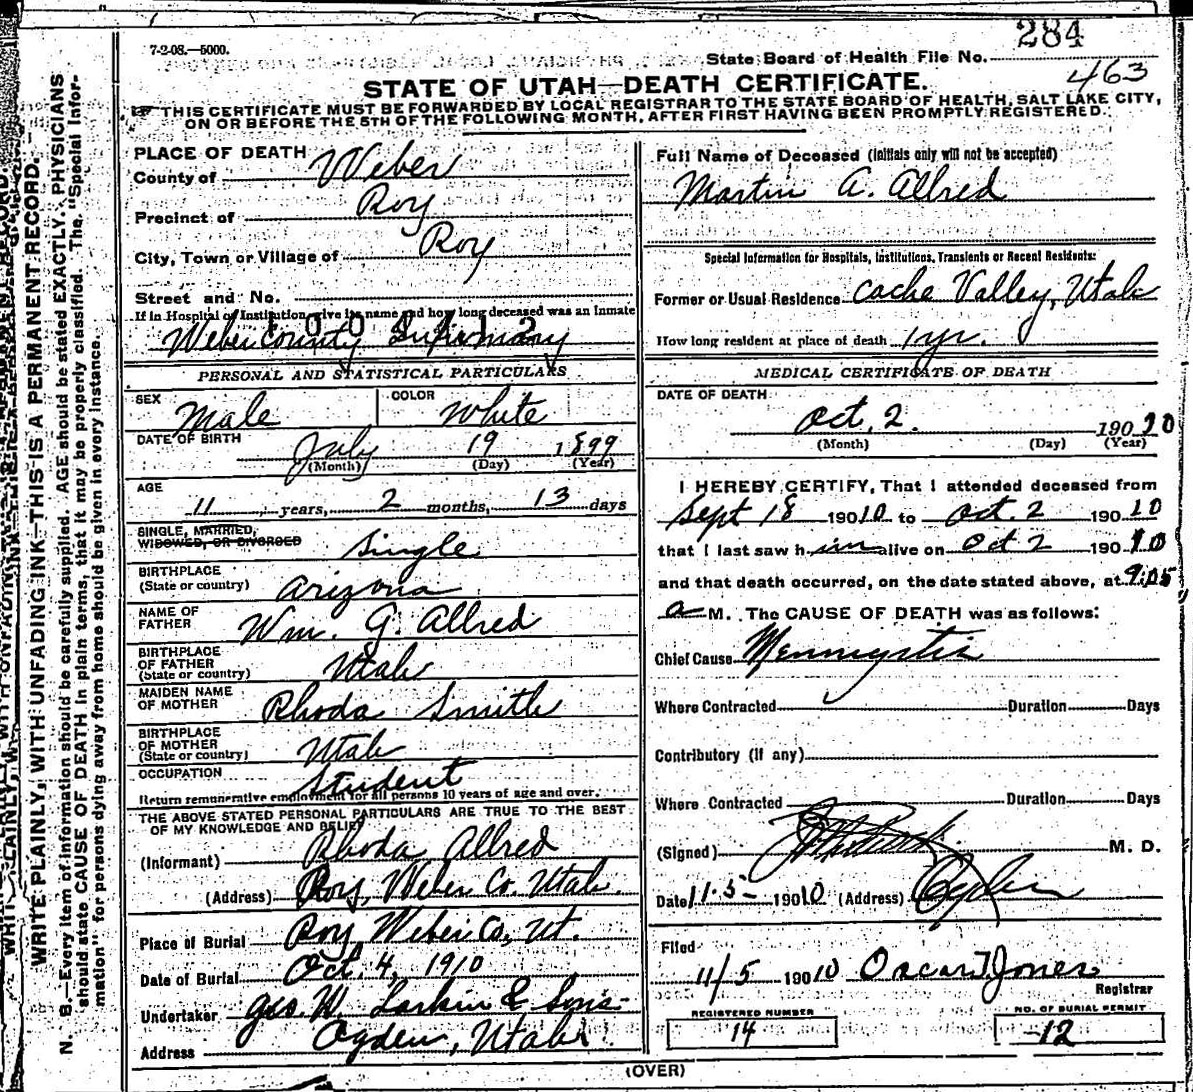 284
7-2-08.—5000.
State Board of Health File No.
463
STATE OF UTAH—DEATH CERTIFICATE.
THIS CERTIFICATE MUST BE FORWARDED BY LOCAL REGISTRAR TO THE STATE BOARD OF HEALTH, SALT LAKE CITY,
ON OR BEFORE THE 5TH OF THE FOLLOWING MONTH, AFTER FIRST HAVING BEEN PROMPTLY REGISTERED.
WRITE PLAINLY, WITH UNFADING INK—THIS IS A PERMANENT RECORD.
N. B.—Every item of information should be carefully supplied. AGE should be stated EXACTLY. PHYSICIANS
should state CAUSE OF DEATH in plain terms, that it may be properly classified. The "Special Infor-
mation" for persons dying away from home should be given in every instance.
PLACE OF DEATH
County of Weber
Precinct of Roy
City, Town or Village of Roy
Street and No.
If in Hospital or Institution give its name and how long deceased was an Inmate
Weber County Infirmary
PERSONAL AND STATISTICAL PARTICULARS
SEX Male COLOR White
DATE OF BIRTH July 19 1899
(Month) (Day) (Year)
AGE
11 years, 2 months, 13 days
SINGLE, MARRIED,
WIDOWED, OR DIVORCED Single
BIRTHPLACE
(State or country) Arizona
NAME OF
FATHER Wm. G. Allred
BIRTHPLACE
OF FATHER
(State or country) Utah
MAIDEN NAME
OF MOTHER Rhoda Smith
BIRTHPLACE
OF MOTHER
(State or country) Utah
OCCUPATION Student
Return remunerative employment for all persons 10 years of age and over.
THE ABOVE STATED PERSONAL PARTICULARS ARE TRUE TO THE BEST
OF MY KNOWLEDGE AND BELIEF
(Informant) Rhoda Allred
(Address) Roy, Weber Co. Utah.
Place of Burial Roy Weber Co, Ut.
Date of Burial Oct. 4, 1910
Undertaker Geo. W. Larkin & Sons
Address Ogden, Utah
Full Name of Deceased (Initials only will not be accepted)
Martin A. Allred
Special Information for Hospitals, Institutions, Transients or Recent Residents:
Former or Usual Residence Cache Valley, Utah
How long resident at place of death 1 yr.
MEDICAL CERTIFICATE OF DEATH
DATE OF DEATH
Oct. 2. 19010
(Month) (Day) (Year)
I HEREBY CERTIFY, That I attended deceased from
Sept 18 19010 to Oct. 2 19010
that I last saw him alive on Oct 2 19010
and that death occurred, on the date stated above, at 9:05
a M. The CAUSE OF DEATH was as follows:
Chief Cause
Where Contracted Duration Days
Contributory (If any)
Where Contracted Duration Days
(Signed) M. D.
Date 11-5- 19010 (Address) Ogden
Filed
11/5 19010 Oscar T Jones
Registrar
REGISTERED NUMBER
14
NO. OF BURIAL PERMIT
12
(OVER)